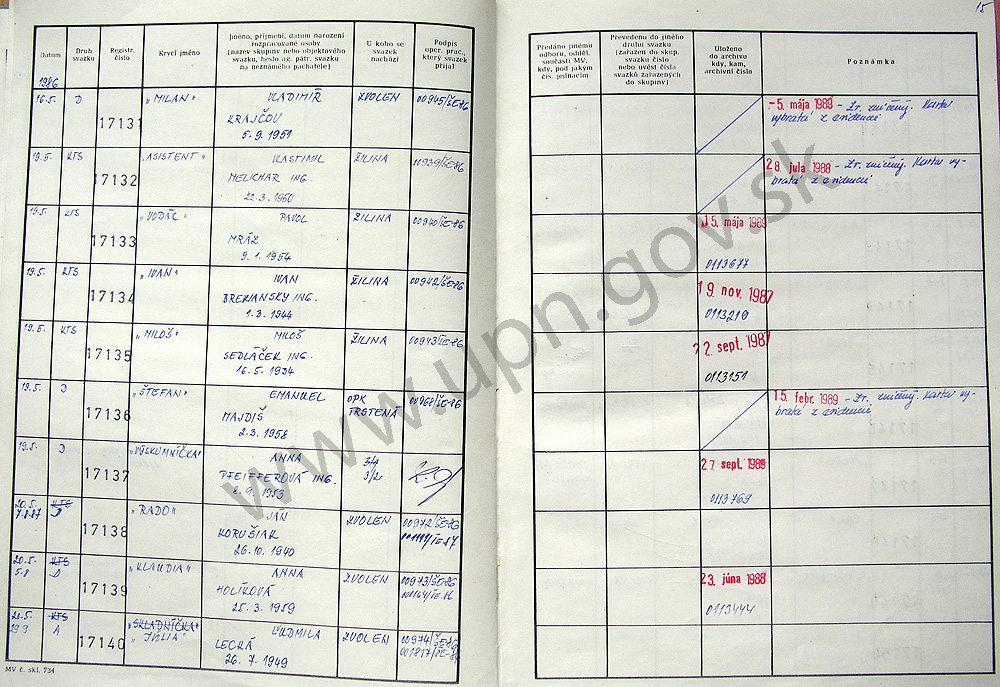 15
Datum
Druh svazku
Registr. číslo
Krycí jméno
Jméno, příjmení, datum narození
rozpracované osoby
(název skupiny nebo objektového
svazku, heslo ag. pátr. svazku
na neznámého pachatele)
U koho se
svazek
nachází
Podpis
oper. prac.,
který svazek
přijal
Předáno jinému
odboru, odděl.
součásti MV,
kdy, pod jakým
čís. jednacím
Převedeno do jiného
druhu svazku
(zařazen do skup.
svazku číslo
nebo uvést čísla
svazků zařazených
do skupiny)
Uloženo
do archivu
kdy, kam,
archivní číslo
Poznámka
1986
16.5. D 17131 "MILAN" VLADIMÍR ZVOLEN 00945/ŠE-86
KRAJČOV
5.9.1951
- 5. mája 1989 - Zv. zničený. Kartu
vybratá z evidencií
19.5. KTS 17132 "ASISTENT" VLASTIMIL ŽILINA 00939/ŠE-86
MELICHAR ING.
22.3.1950
28. júla 1988 - Zv. zničený. Kartu vy-
bratá z evidencií
19.5. KTS 17133 "VODÁR" PAVOL ŽILINA 00940/ŠE-86
MRÁZ
9.1.1954
15. mája 1989
0113677
19.5. KTS 17134 "IVAN" IVAN ŽILINA 00942/ŠE-86
BREKIANSKY ING.
1.3.1944
19. nov. 1987
0113219
19.5. KTS 17135 "MILOŠ" MILOŠ ŽILINA 00943/ŠE-86
SEDLÁČEK ING.
16.5.1934
22. sept. 1987
0113151
19.5. D 17136 "ŠTEFAN" EMANUEL OPK TRSTENÁ 00968/ŠE-86
MAJDIŠ
2.3.1958
15. febr. 1989 - Zv. zničený. Kartu vy-
bratá z evidencií
19.5. D 17137 "VÝSKUMNÍČKA" ANNA
PFEIFFEROVÁ ING.
27. sept. 1989
0113769
20.5. KTS 17138 "RADO" JÁN ZVOLEN 00972/ŠE-86
7.8.87 D KORUŠIAK
26.10.1940
20.5. KTS 17139 "KLAUDIA" ANNA ZVOLEN 00973/ŠE-86
5.8 D HOLÍKOVÁ
25.3.1959
23. júna 1988
0113444
20.5. KTS 17140 "SKLADNÍČKA" ĽUDMILA ZVOLEN 00974/ŠE-86
A "JÚLIA"
LECKÁ
26.7.1949
MV č. skl. 734
www.upn.gov.sk